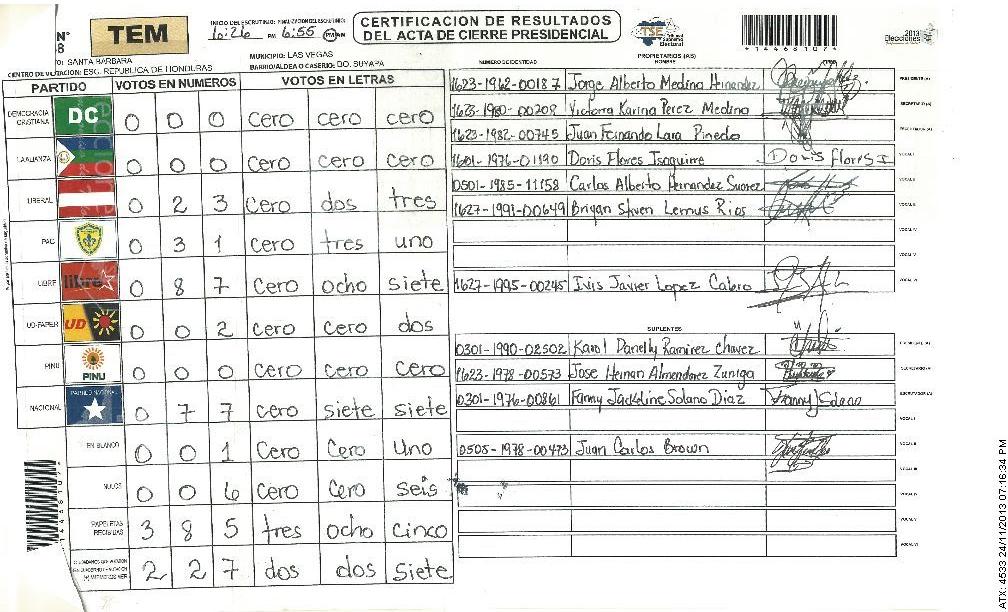 TEM
INICIO DEL ESCRUTINIO: FINALIZACION DEL ESCRUTINIO:
6:26 PM 6:55 PM AM
CERTIFICACION DE RESULTADOS
DEL ACTA DE CIERRE PRESIDENCIAL
TSE
Tribunal
Supremo
Electoral
14468107
2013
Elecciones
N°
8
SANTA BARBARA
MUNICIPIO: LAS VEGAS
CENTRO DE VOTACION: ESC. REPUBLICA DE HONDURAS
BARRIO/ALDEA O CASERIO: DO. SUYAPA
NUMERO DE IDENTIDAD
PROPIETARIOS (AS)
NOMBRE
PARTIDO VOTOS EN NUMEROS VOTOS EN LETRAS
DEMOCRACIA CRISTIANA DC 0 0 0 cero cero cero
LA ALIANZA 0 0 0 cero cero cero
LIBERAL 0 2 3 cero dos tres
PAC 0 3 1 cero tres uno
LIBRE libre 0 8 7 cero ocho siete
UD-FAPER UD 0 0 2 cero cero dos
PINU PINU 0 0 0 cero cero cero
NACIONAL PARTIDO NACIONAL 0 7 7 cero siete siete
EN BLANCO 0 0 1 cero cero uno
NULOS 0 0 6 cero cero seis
PAPELETAS RECIBIDAS 3 8 5 tres ocho cinco
2 2 7 dos dos siete
1623-1962-00187 Jorge Alberto Medina Hernandez PRESIDENTE (A)
1623-1980-00208 Victoria Karina Perez Medina SECRETARIO (A)
1623-1982-00745 Juan Fernando Lara Pinedo ESCRUTADOR (A)
1601-1976-01190 Doris Flores Isaguirre Doris flores I VOCAL I
0501-1985-11158 Carlos Alberto Hernandez Suarez VOCAL II
1627-1991-00649 Briyan Stiven Lemus Rios VOCAL III
VOCAL IV
VOCAL V
1627-1995-00245 Ivis Javier Lopez Calero VOCAL VI
SUPLENTES
0301-1990-02502 Karol Danelly Ramirez Chavez PRESIDENTE (A)
1623-1978-00573 Jose Hernan Almendarez Zuniga SECRETARIO (A)
0301-1976-00861 Fanny Jackeline Solano Diaz Fanny J Solano ESCRUTADOR (A)
VOCAL I
0505-1978-00473 Juan Carlos Brown VOCAL II
VOCAL III
VOCAL IV
VOCAL V
VOCAL VI
14468107
ATX: 4533 24/11/2013 07:16:34 PM